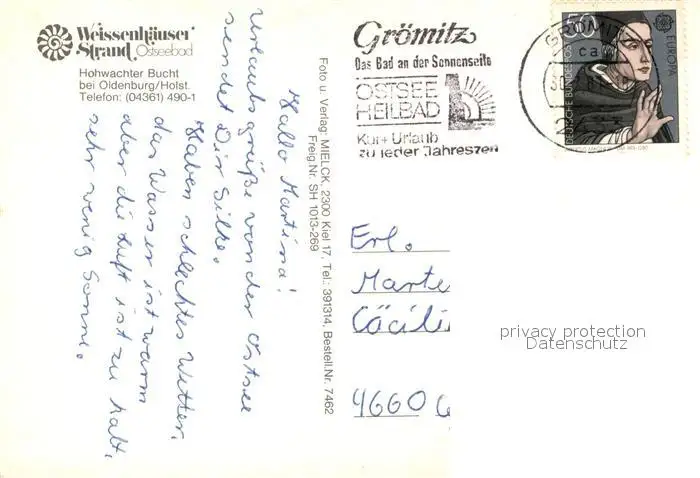 Weissenhäuser
Strand Ostseebad
Hohwachter Bucht
bei Oldenburg/Holst.
Telefon: (04361) 490-1
Hallo Martina!
Urlaubsgrüße von der Ostsee
sendet Dir Silke.
Haben schlechtes Wetter,
das Wasser ist warm
aber die Luft ist zu kalt,
sehr wenig Sonne.
Foto u. Verlag: MIELCK, 2300 Kiel 17, Tel.: 391314, Bestell.Nr. 7462
Freig.Nr. SH 1013-269
Grömitz
Das Bad an der Sonnenseite
OSTSEE
HEILBAD
Kur + Urlaub
zu jeder Jahreszeit
GRÖMITZ
ca
50
EUROPA
DEUTSCHE BUNDESPOST
Erl.
Marte
Cäcili
4660 G
privacy protection
Datenschutz